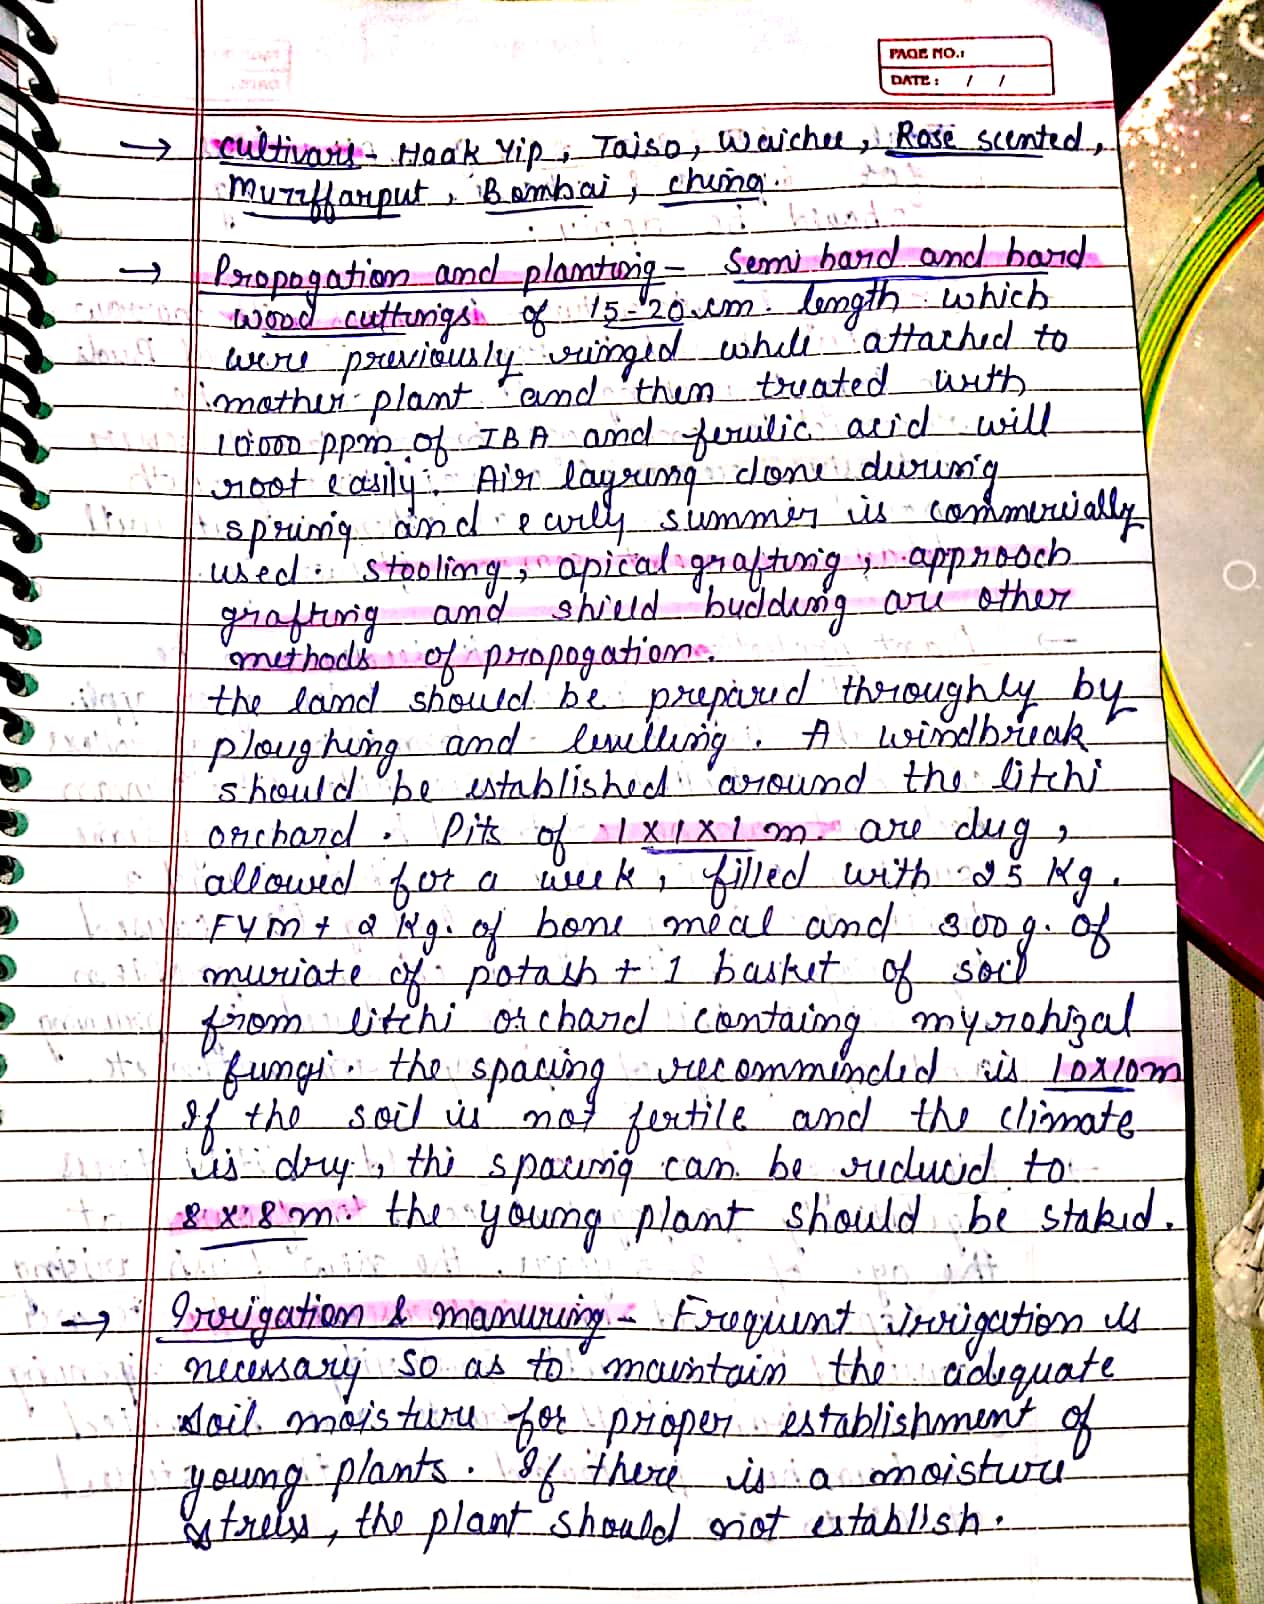 PAGE NO.:
DATE: / /
→ cultivars - Haak Yip, Taiso, Waichee, Rose scented,
Muzzffarput, Bombai, china.
→ Propogation and planting - Semi hard and hard
wood cuttings of 15-20 cm. length which
were previously ringed while attached to
mother plant and then treated with
10000 ppm of IBA and ferulic acid will
root easily. Air layring done during
spring and early summer is commercially
used. Stooling, apical grafting, approach
grafting and shield budding are other
methods of propogation.
the land should be prepared throughly by
ploughing and levelling. A windbreak
should be established around the litchi
orchard. Pits of 1x1x1 m. are dug,
allowed for a week, filled with 25 Kg.
FYM + 2 Kg. of bone meal and 300 g. of
muriate of potash + 1 basket of soil
from litchi orchard containg myrohizal
fungi. the spacing recommended is 10x10m
If the soil is not fertile and the climate
is dry, the spacing can be reduced to
8 x 8 m. the young plant should be staked.
→ Irrigation & manuring - Frequent irrigation is
necessary so as to maintain the adequate
soil moisture for proper establishment of
young plants. If there is a moisture
stress, the plant should not establish.